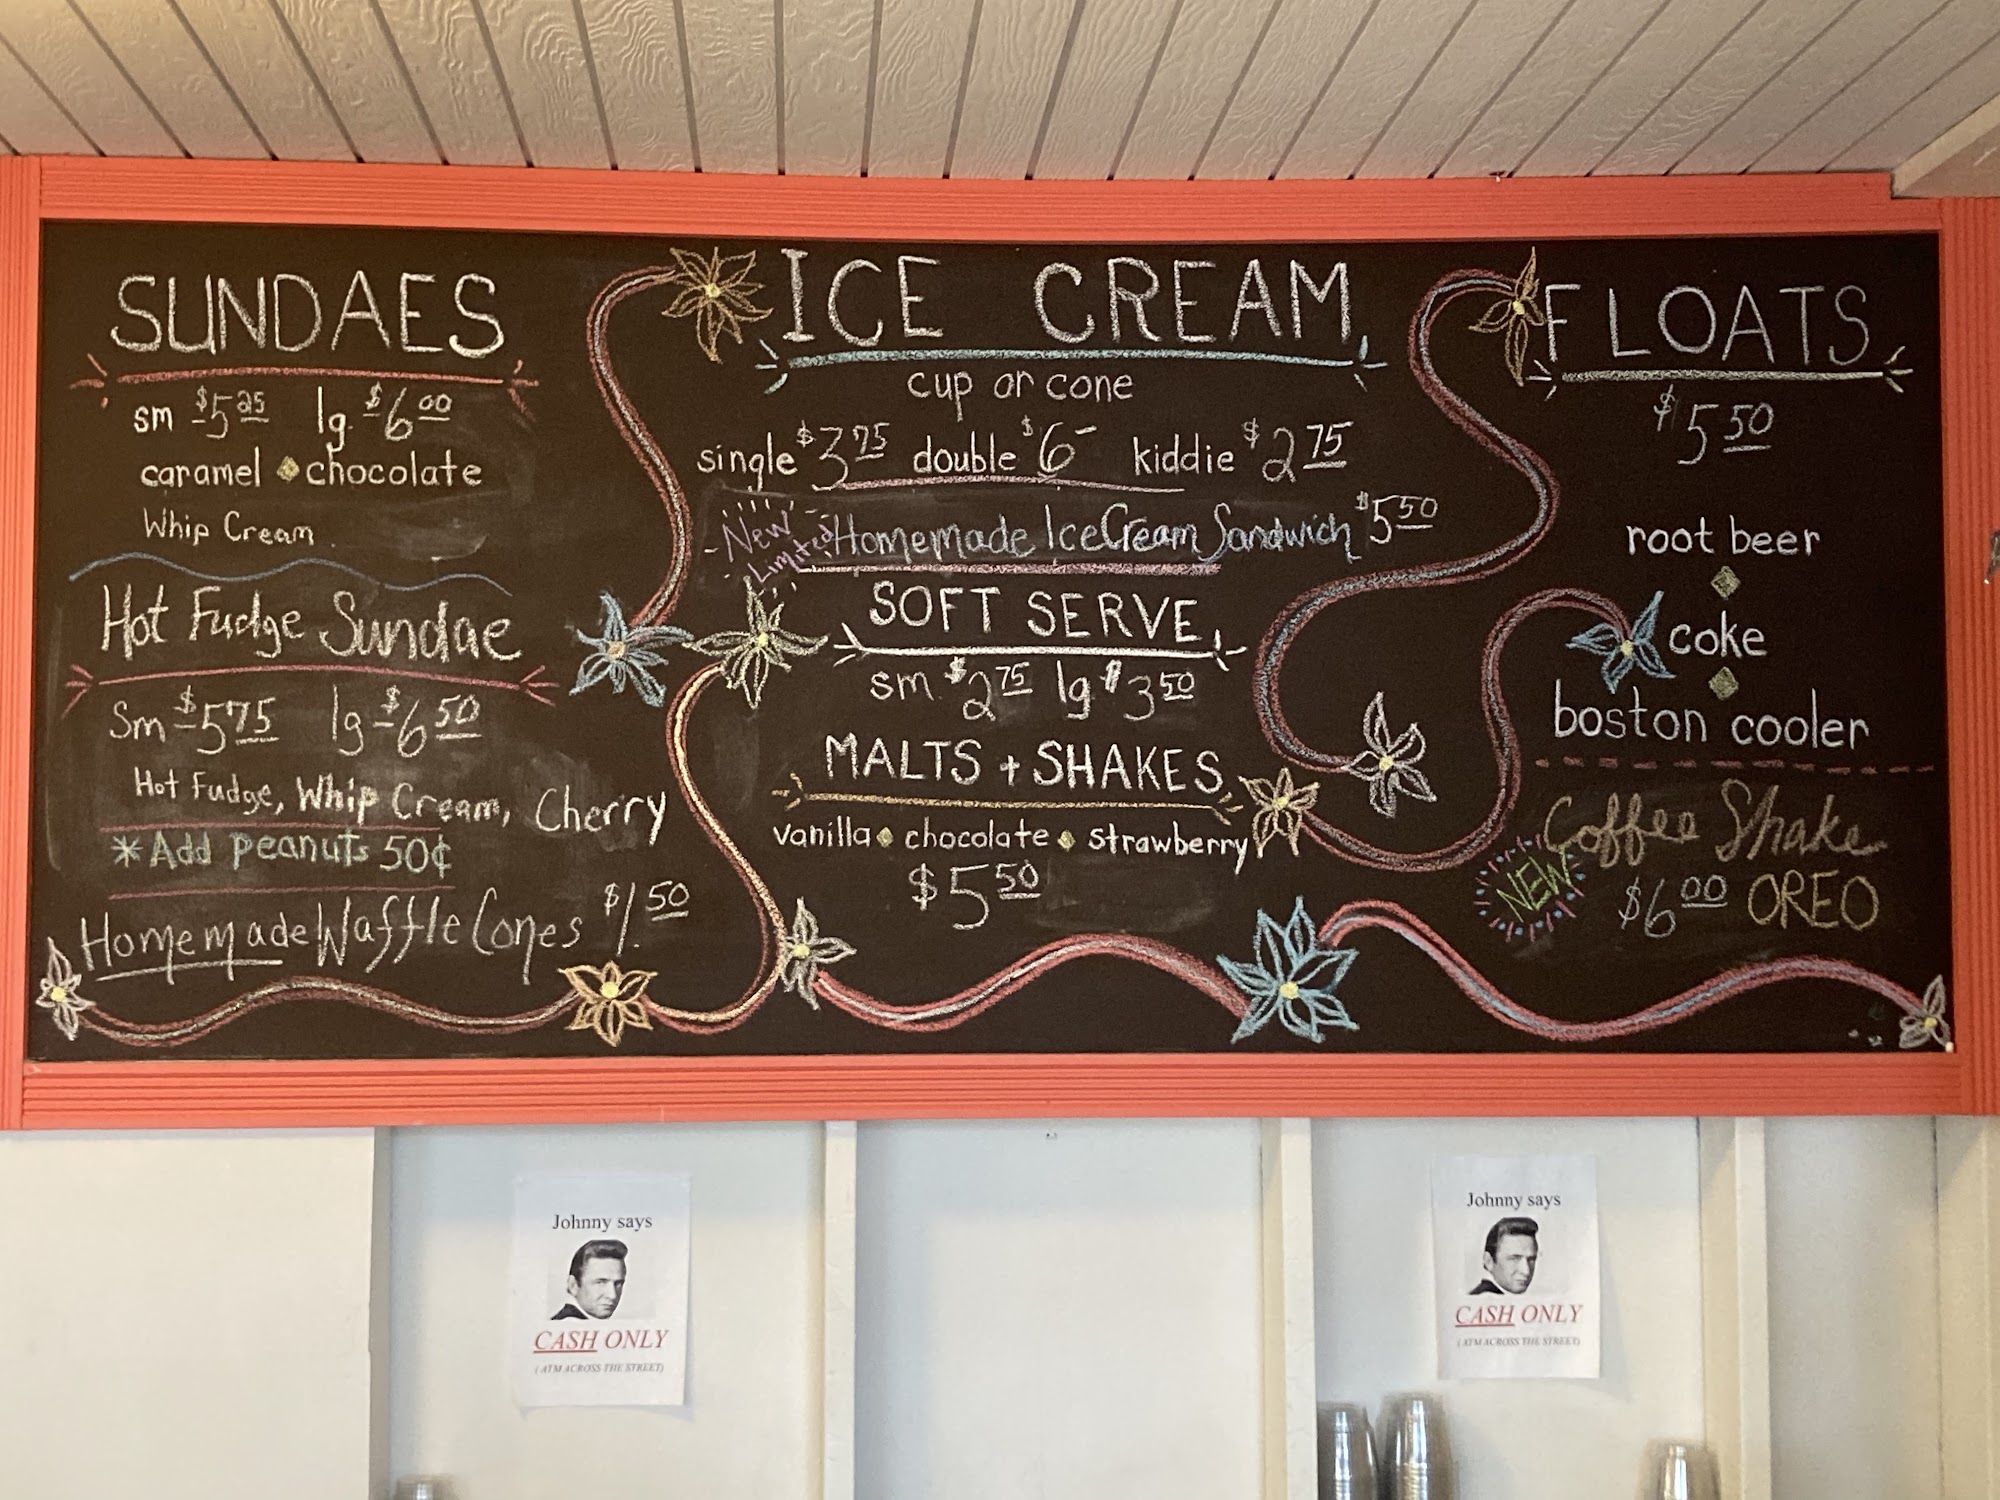 SUNDAES
sm $5.25 lg. $6.00
caramel ◆ chocolate
Whip Cream
Hot Fudge Sundae
Sm $5.75 lg $6.50
Hot Fudge, Whip Cream, Cherry
*Add peanuts 50¢
Homemade Waffle Cones $1.50
ICE CREAM
cup or cone
single $3.75 double $6- kiddie $2.75
New Limited Homemade Ice Cream Sandwich $5.50
SOFT SERVE
sm. $2.75 lg $3.50
MALTS + SHAKES
vanilla ◆ chocolate ◆ strawberry
$5.50
FLOATS
$5.50
root beer
◆
coke
◆
boston cooler
Coffee Shake
NEW $6.00 OREO
Johnny says
CASH ONLY
( ATM ACROSS THE STREET)
Johnny says
CASH ONLY
( ATM ACROSS THE STREET)